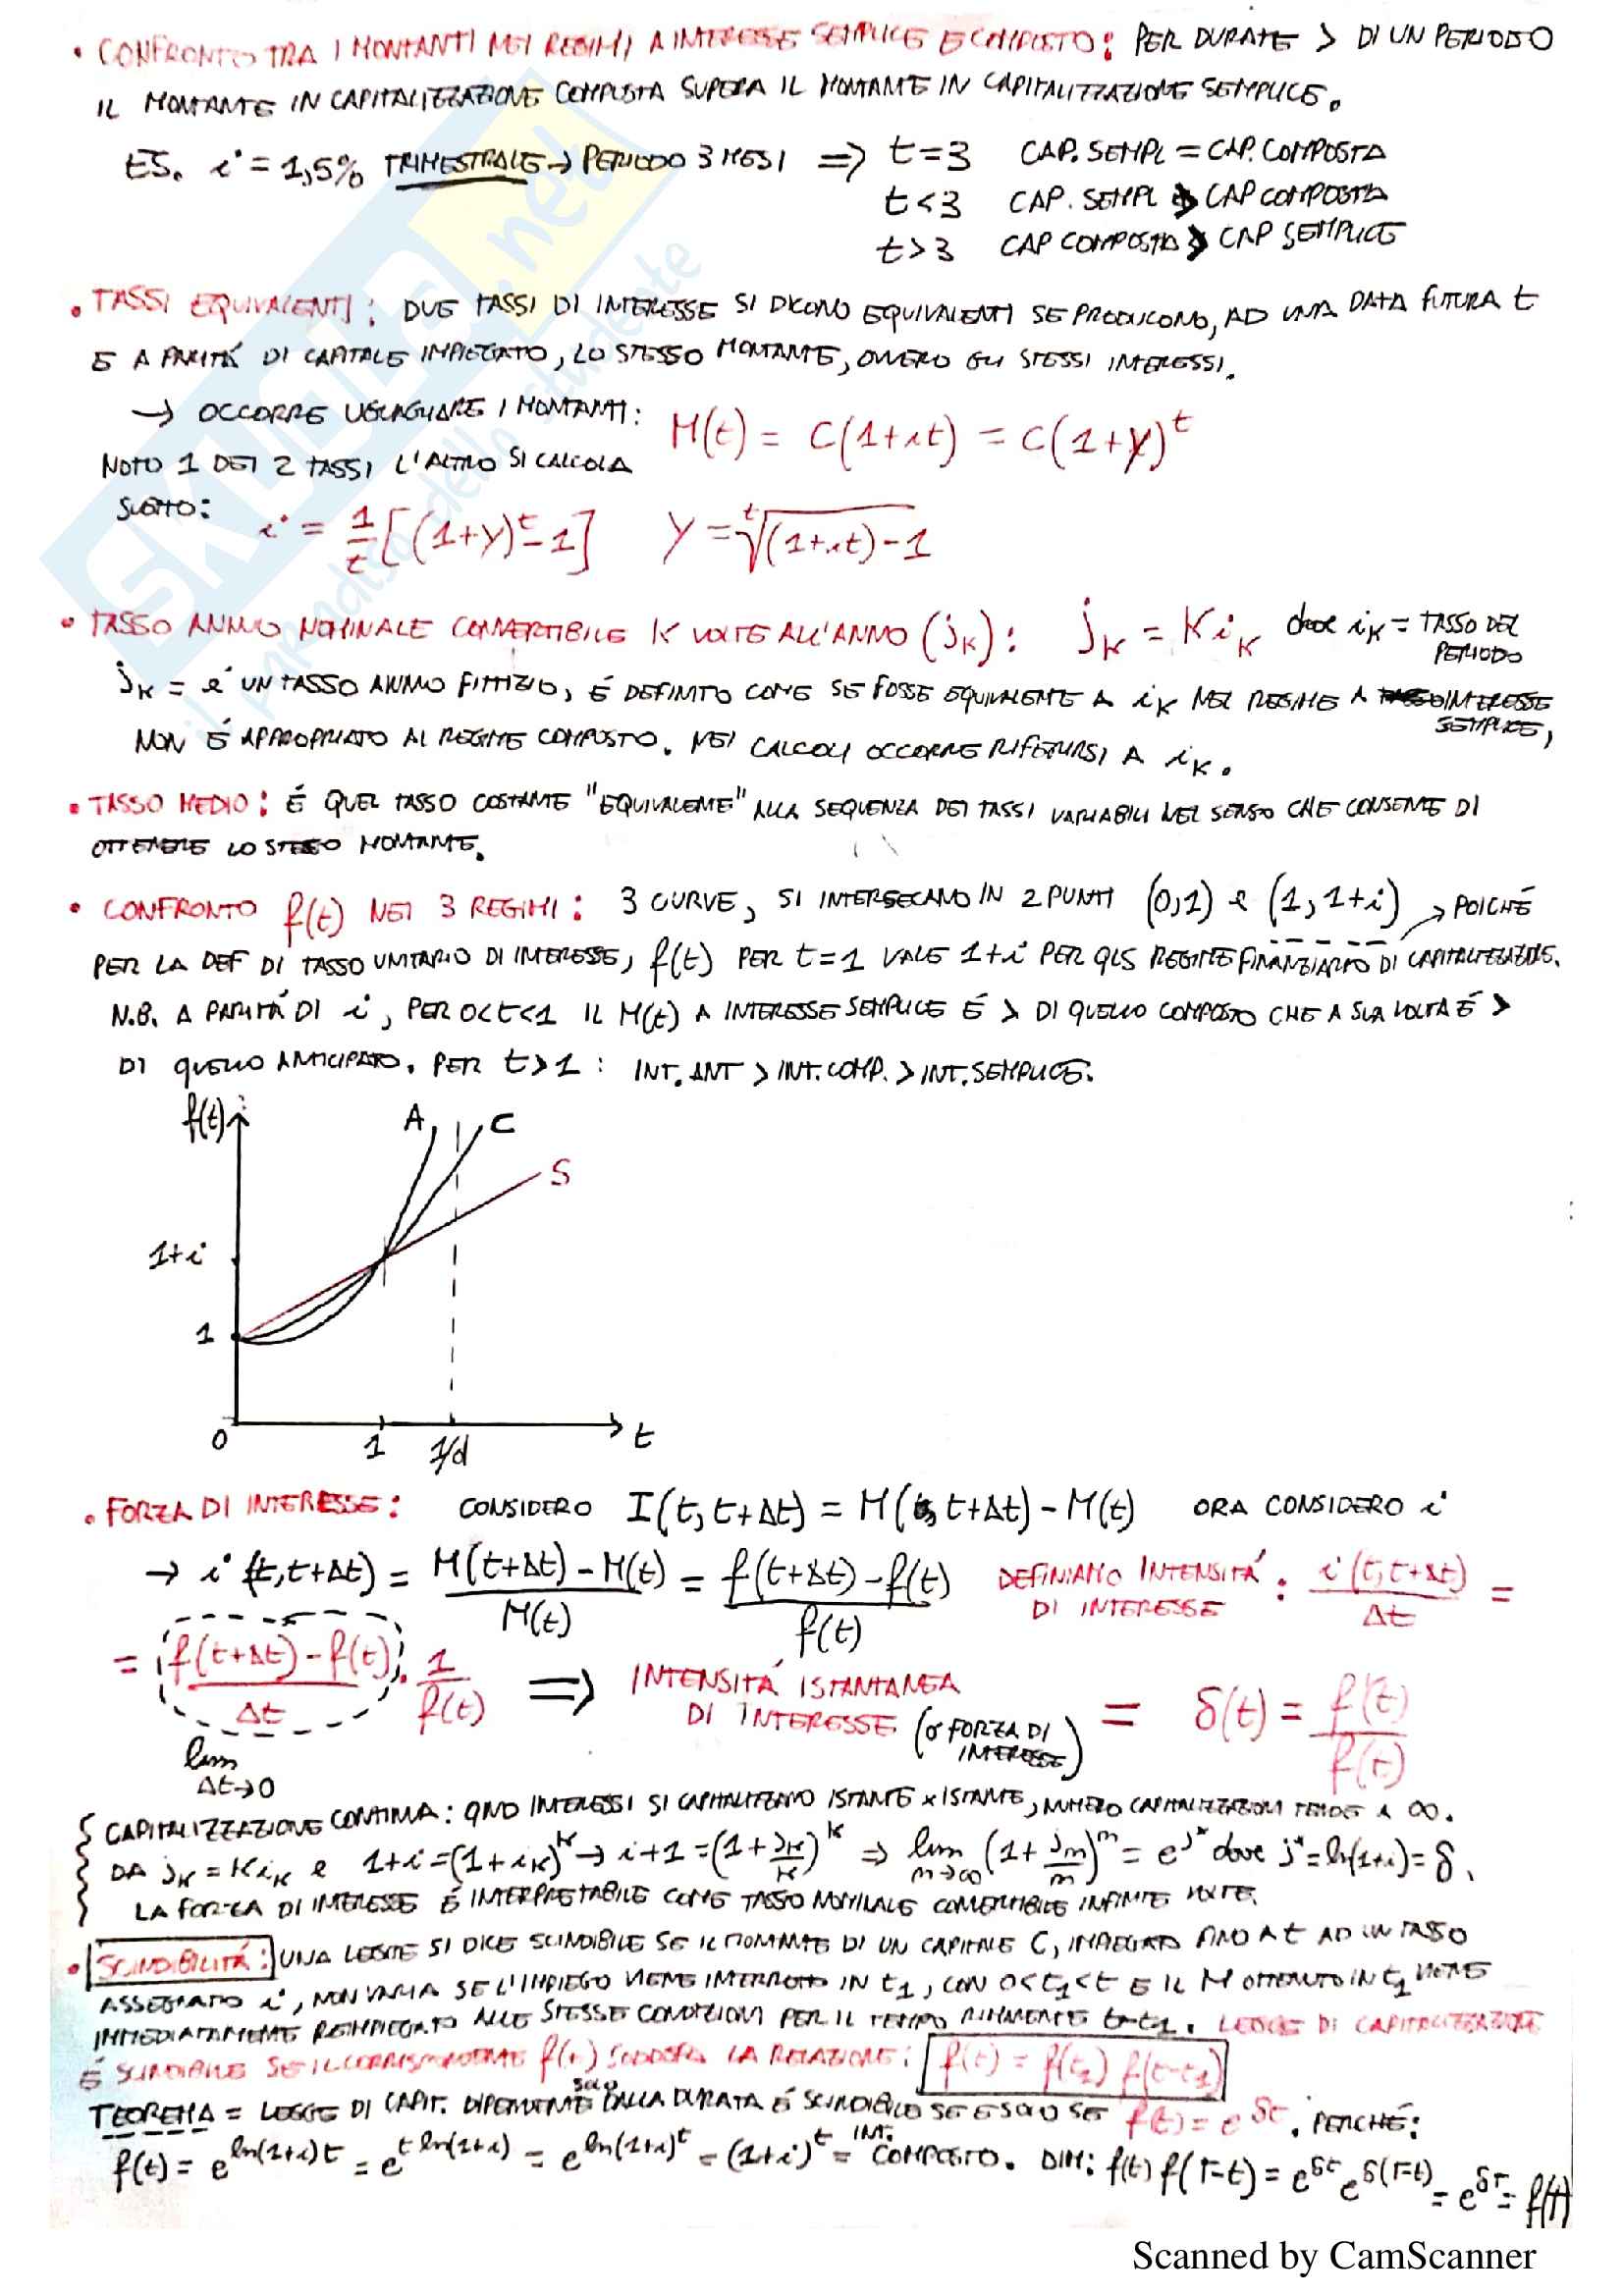 • CONFRONTO TRA I MONTANTI NEI REGIMI A INTERESSE SEMPLICE E COMPOSTO: PER DURATE > DI UN PERIODO
IL MONTANTE IN CAPITALIZZAZIONE COMPOSTA SUPERA IL MONTANTE IN CAPITALIZZAZIONE SEMPLICE.
ES. i = 1,5% TRIMESTRALE → PERIODO 3 MESI ⇒ t=3 CAP. SEMPL = CAP. COMPOSTA
t<3 CAP. SEMPL > CAP COMPOSTA
t>3 CAP COMPOSTA > CAP SEMPLICE
• TASSI EQUIVALENTI: DUE TASSI DI INTERESSE SI DICONO EQUIVALENTI SE PRODUCONO, AD UNA DATA FUTURA t
E A PARITÁ DI CAPITALE IMPIEGATO, LO STESSO MONTANTE, OVVERO GLI STESSI INTERESSI.
→ OCCORRE UGUAGLIARE I MONTANTI: M(t) = C(1+it) = C(1+y)^t
NOTO 1 DEI 2 TASSI L'ALTRO SI CALCOLA
SUBITO: i = 1/t [(1+y)^t - 1] y = ^t√(1+it) - 1
• TASSO ANNUO NOMINALE CONVERTIBILE K VOLTE ALL'ANNO (jK): jK = K iK dove iK = TASSO DEL
PERIODO
jK = e' UN TASSO ANNUO FITTIZIO, É DEFINITO COME SE FOSSE EQUIVALENTE A iK NEL REGIME A INTERESSE
SEMPLICE,
NON É APPROPRIATO AL REGIME COMPOSTO. NEI CALCOLI OCCORRE RIFERIRSI A iK.
• TASSO MEDIO: É QUEL TASSO COSTANTE "EQUIVALENTE" ALLA SEQUENZA DEI TASSI VARIABILI NEL SENSO CHE CONSENTE DI
OTTENERE LO STESSO MONTANTE.
• CONFRONTO f(t) NEI 3 REGIMI: 3 CURVE, SI INTERSECANO IN 2 PUNTI (0,1) e (1, 1+i) → POICHÉ
PER LA DEF DI TASSO UNITARIO DI INTERESSE, f(t) PER t=1 VALE 1+i PER QLS REGIME FINANZIARIO DI CAPITALIZZAZIONE.
N.B. A PARITÁ DI i, PER 0<t<1 IL M(t) A INTERESSE SEMPLICE É > DI QUELLO COMPOSTO CHE A SUA VOLTA É >
DI QUELLO ANTICIPATO. PER t>1: INT. ANT > INT. COMP. > INT. SEMPLICE.
f(t)
A
C
S
1+i
1
0
1
1/d
t
• FORZA DI INTERESSE: CONSIDERO I(t, t+Δt) = M(t+Δt) - M(t) ORA CONSIDERO i
→ i (t, t+Δt) = M(t+Δt) - M(t) / M(t) = f(t+Δt) - f(t) / f(t) DEFINIAMO INTENSITÁ DI INTERESSE: i(t, t+Δt) / Δt =
= f(t+Δt) - f(t) / Δt · 1/f(t) ⇒ INTENSITÁ ISTANTANEA DI INTERESSE (o FORZA DI INTERESSE) = δ(t) = f'(t) / f(t)
lim Δt→0
CAPITALIZZAZIONE CONTINUA: QND INTERESSI SI CAPITALIZZANO ISTANTE x ISTANTE, NUMERO CAPITALIZZAZIONI TENDE A ∞.
DA jK = K iK e 1+i = (1+iK)^K → i+1 = (1+ jK/K)^K ⇒ lim m→∞ (1+ jm/m)^m = e^j* dove j* = ln(1+i) = δ.
LA FORZA DI INTERESSE É INTERPRETABILE COME TASSO NOMINALE CONVERTIBILE INFINITE VOLTE.
• SCINDIBILITÁ: UNA LEGGE SI DICE SCINDIBILE SE IL MONTANTE DI UN CAPITALE C, IMPIEGATO FINO A t AD UN TASSO
ASSEGNATO i, NON VARIA SE L'IMPIEGO VIENE INTERROTTO IN t1, CON 0<t1<t E IL M OTTENUTO IN t1 VIENE
IMMEDIATAMENTE REIMPIEGATO ALLE STESSE CONDIZIONI PER IL TEMPO RIMANENTE t-t1. LEGGE DI CAPITALIZZAZIONE
É SCINDIBILE SE IL CORRISPONDENTE f(t) SODDISFA LA RELAZIONE: f(t) = f(t1) f(t-t1)
TEOREMA = LEGGE DI CAPIT. DIPENDENTE SOLO DALLA DURATA É SCINDIBILE SE E SOLO SE f(t) = e^δt. PERCHÉ:
f(t) = e^ln(1+i)t = e^t ln(1+i) = e^ln(1+i)^t = (1+i)^t = INT. COMPOSTO. DIM: f(t) f(T-t) = e^δt e^δ(T-t) = e^δT = f(T)
Scanned by CamScanner
SKUOLA.net
il paradiso dello studente